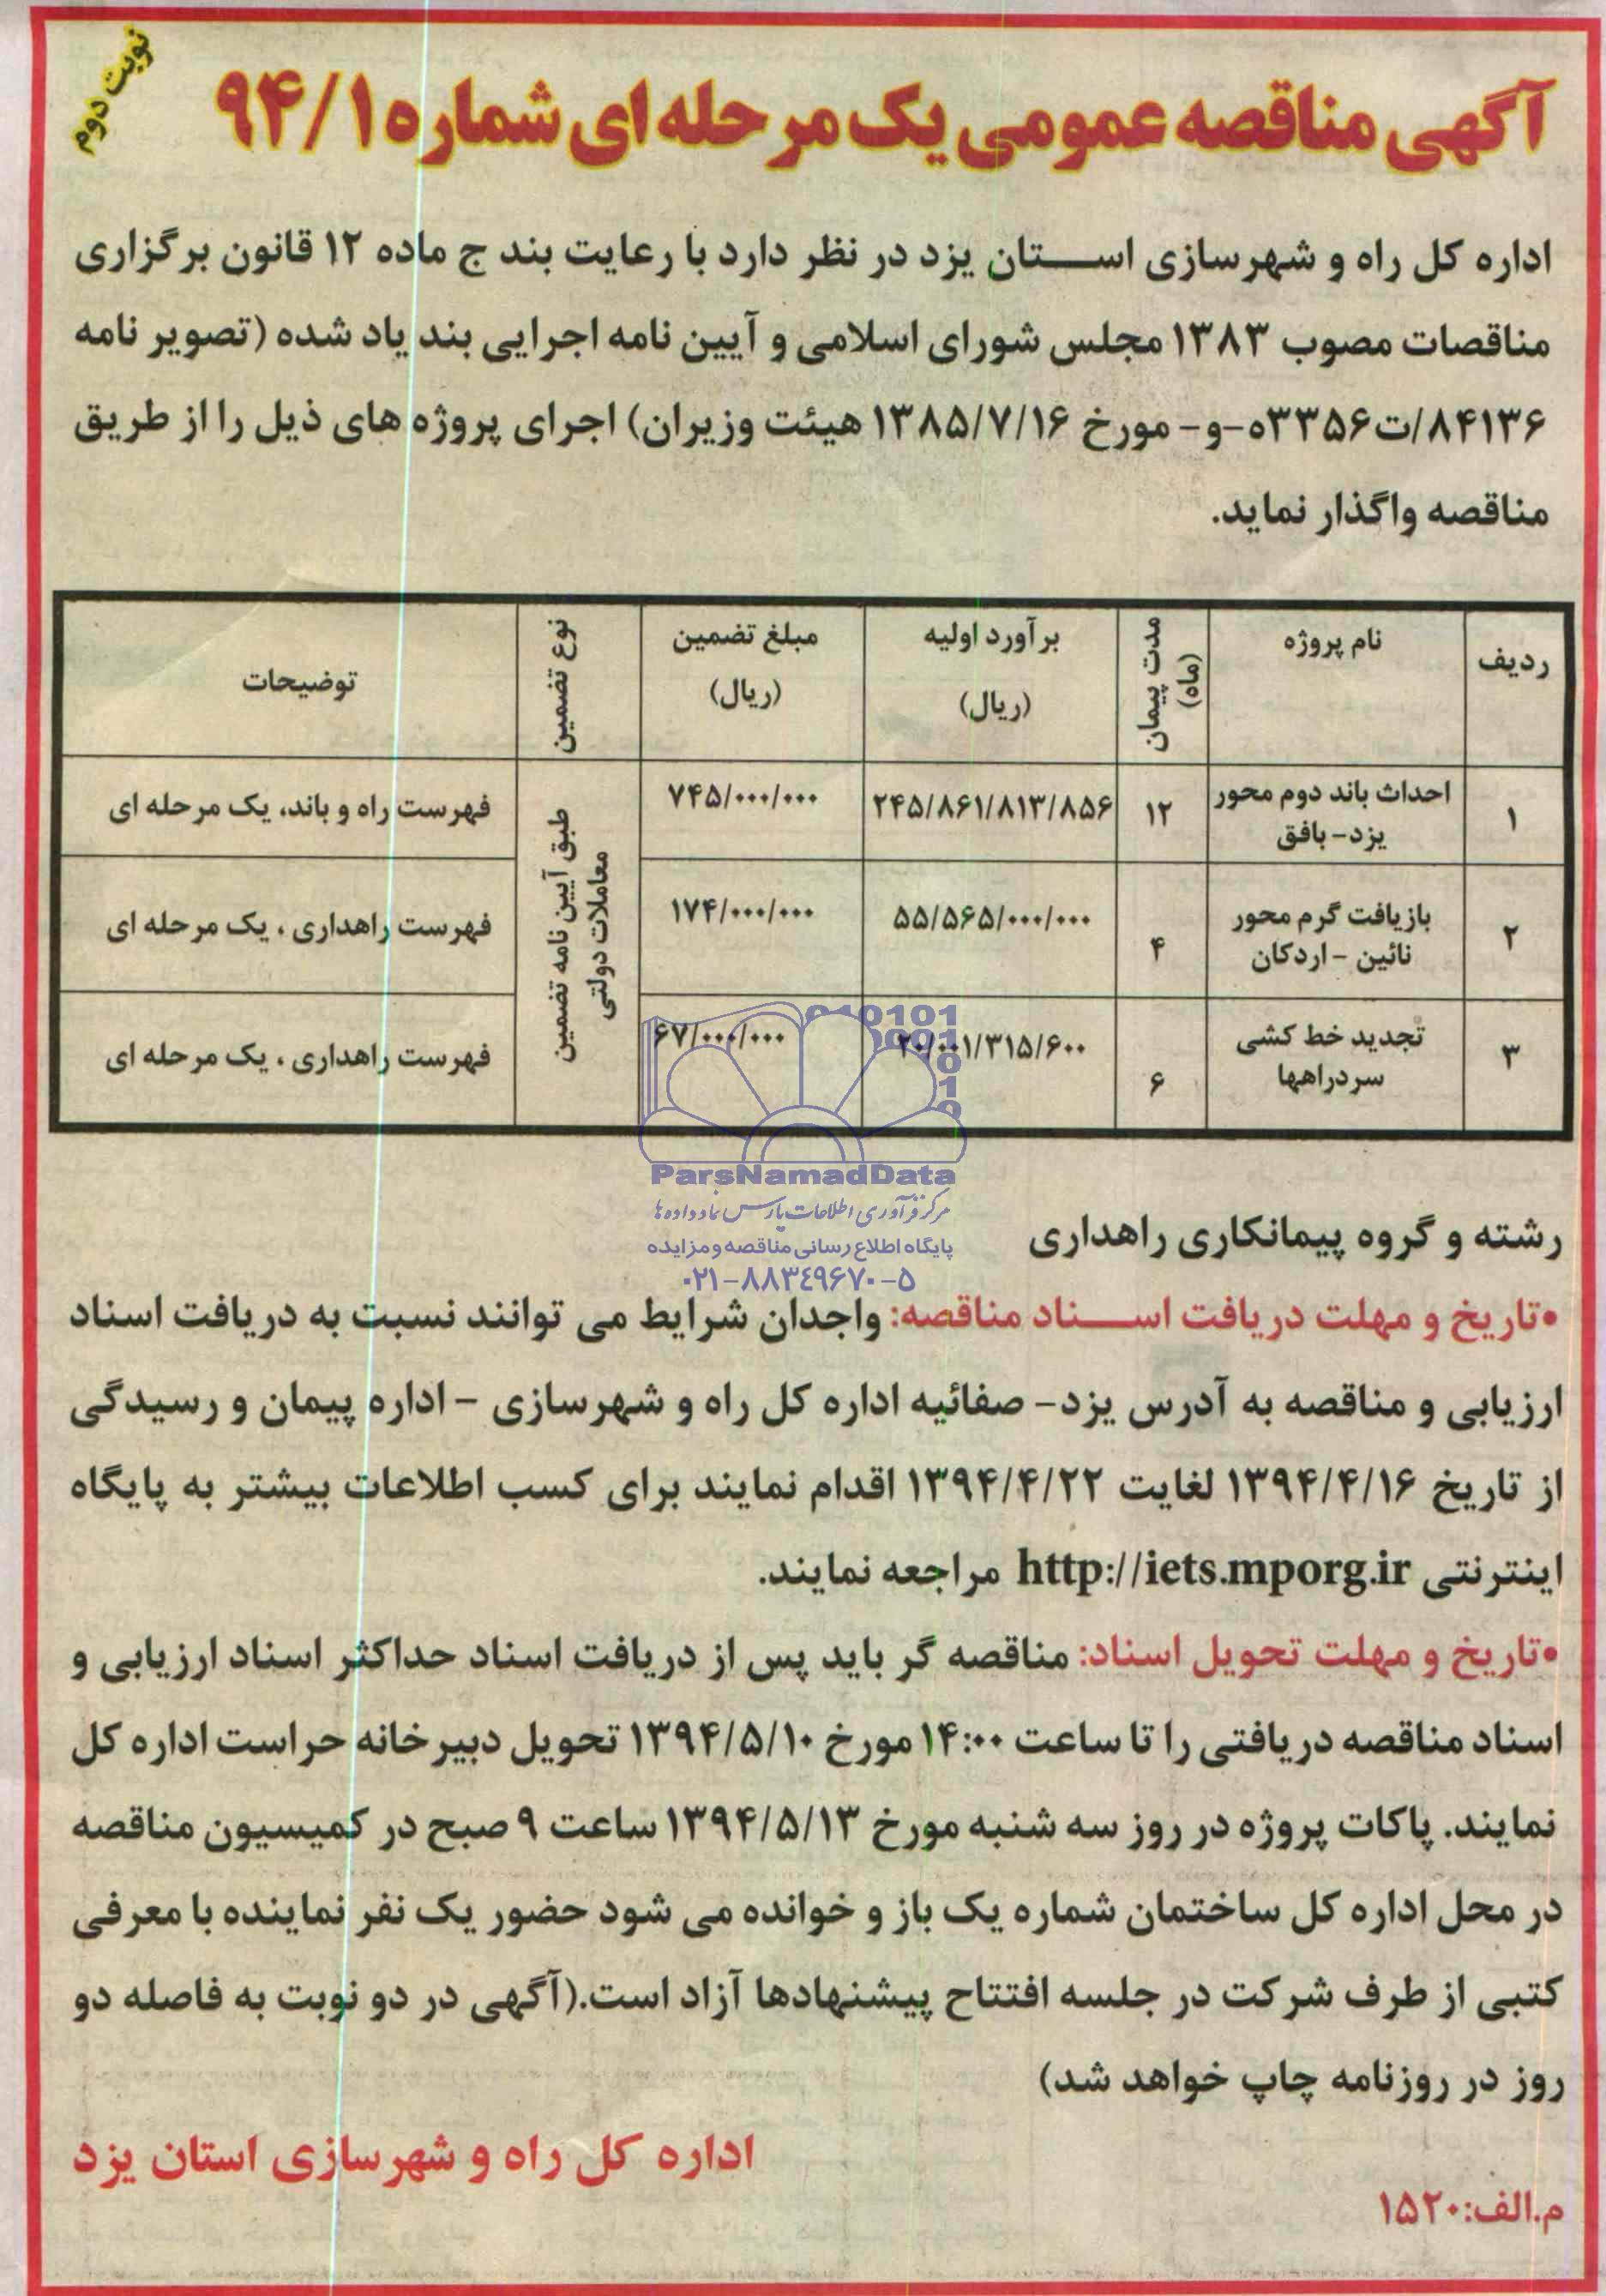 نوبت دوم
آگهی مناقصه عمومی یک مرحله ای شماره ۹۴/۱
اداره کل راه و شهرسازی استان یزد در نظر دارد با رعایت بند ج ماده ۱۲ قانون برگزاری
مناقصات مصوب ۱۳۸۳ مجلس شورای اسلامی و آیین نامه اجرایی بند یاد شده (تصویر نامه
۸۴۱۳۶/ت۳۳۵۶ه-و- مورخ ۱۳۸۵/۷/۱۶ هیئت وزیران) اجرای پروژه های ذیل را از طریق
مناقصه واگذار نماید.
ردیف | نام پروژه | مدت پیمان (ماه) | برآورد اولیه (ریال) | مبلغ تضمین (ریال) | نوع تضمین | توضیحات
۱ | احداث باند دوم محور یزد- بافق | ۱۲ | ۲۴۵/۸۶۱/۸۱۳/۸۵۶ | ۷۴۵/۰۰۰/۰۰۰ | طبق آیین نامه تضمین معاملات دولتی | فهرست راه و باند، یک مرحله ای
۲ | بازیافت گرم محور نائین - اردکان | ۴ | ۵۵/۵۶۵/۰۰۰/۰۰۰ | ۱۷۴/۰۰۰/۰۰۰ | فهرست راهداری ، یک مرحله ای
۳ | تجدید خط کشی سردراهها | ۶ | ۲۰/۰۰۱/۳۱۵/۶۰۰ | ۶۷/۰۰۰/۰۰۰ | فهرست راهداری ، یک مرحله ای
ParsNamadData
مرکز فرآوری اطلاعات پارس نماد داده ها
پایگاه اطلاع رسانی مناقصه و مزایده
۰۲۱-۸۸۳۴۹۶۷۰-۵
رشته و گروه پیمانکاری راهداری
•تاریخ و مهلت دریافت اسناد مناقصه: واجدان شرایط می توانند نسبت به دریافت اسناد
ارزیابی و مناقصه به آدرس یزد- صفائیه اداره کل راه و شهرسازی - اداره پیمان و رسیدگی
از تاریخ ۱۳۹۴/۴/۱۶ لغایت ۱۳۹۴/۴/۲۲ اقدام نمایند برای کسب اطلاعات بیشتر به پایگاه
اینترنتی http://iets.mporg.ir مراجعه نمایند.
•تاریخ و مهلت تحویل اسناد: مناقصه گر باید پس از دریافت اسناد حداکثر اسناد ارزیابی و
اسناد مناقصه دریافتی را تا ساعت ۱۴:۰۰ مورخ ۱۳۹۴/۵/۱۰ تحویل دبیرخانه حراست اداره کل
نمایند. پاکات پروژه در روز سه شنبه مورخ ۱۳۹۴/۵/۱۳ ساعت ۹ صبح در کمیسیون مناقصه
در محل اداره کل ساختمان شماره یک باز و خوانده می شود حضور یک نفر نماینده با معرفی
کتبی از طرف شرکت در جلسه افتتاح پیشنهادها آزاد است.(آگهی در دو نوبت به فاصله دو
روز در روزنامه چاپ خواهد شد)
اداره کل راه و شهرسازی استان یزد
م.الف:۱۵۲۰